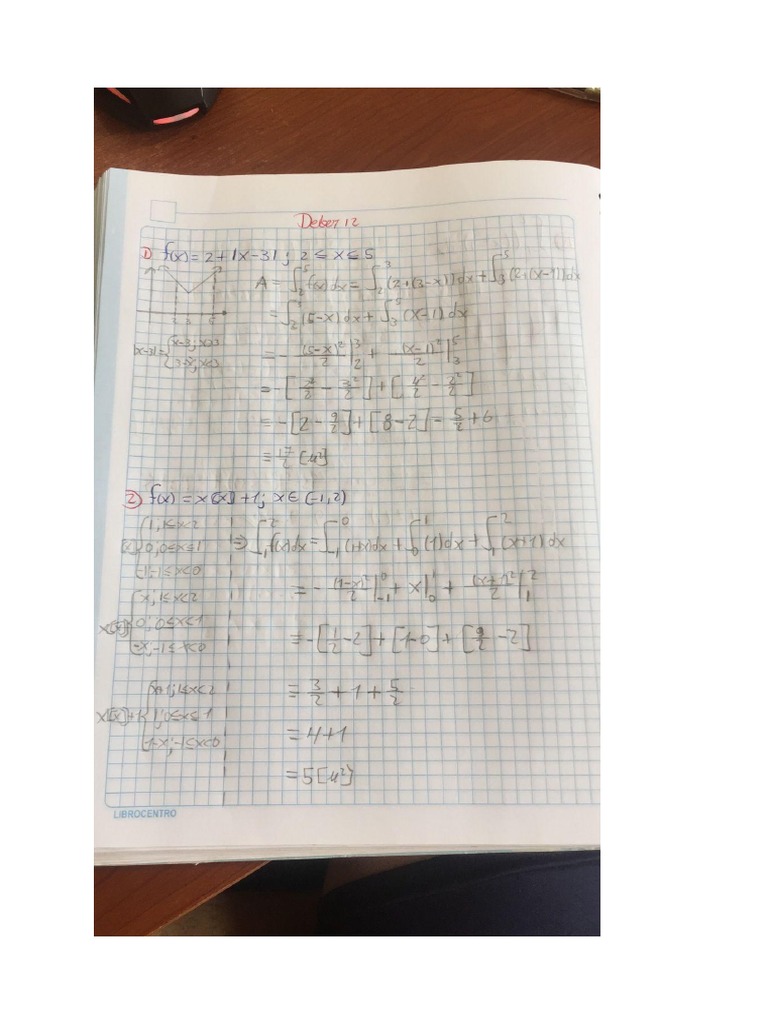 Deber 12
1) f(x) = 2 + |x-3| ; 2 ≤ x ≤ 5
A = ∫_2^5 f(x) dx = ∫_2^3 (2+(3-x)) dx + ∫_3^5 (2+(x-
= ∫_2^3 (5-x) dx + ∫_3^5 (x-1) dx
2 3 5
|x-3| = { x-3;
3-x;
= - (5-x)²/2 |_2^3 + (x-1)²/2 |_3^5
= -[ 2²/2 - 3²/2 ] + [ 4²/2 - 2²/2 ]
= -[2 - 9/2] + [8-2] = 5/2 + 6
= 17/2 [u²]
2) f(x) = x[x] + 1; x ∈ (-1,2)
[x] { 1; 1≤x<2
0; 0≤x≤1
-1; -1≤x<0
⇒ ∫_-1^2 f(x) dx = ∫_-1^0 (1-x) dx + ∫_0^1 (1) dx + ∫_1^2 (x+1) dx
= - (1-x)²/2 |_-1^0 + x |_0^1 + (x+1)²/2 |_1^2
x[x] { x; 1≤x<2
0; 0≤x≤1
-x; -1≤x<0
= -[1/2 - 2] + [1-0] + [9/2 - 2]
= 3/2 + 1 + 5/2
x[x]+1 { x+1; 1≤x<2
1; 0≤x≤1
1-x; -1≤x<0
= 4+1
= 5 [u²]
LIBROCENTRO